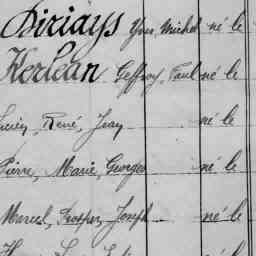 Diriays Yves, Michel né le
Kerlean Geffroy, Paul né le
Lucien, René, Jean né le
Pierre, Marie, Georges né le
Marcel, Prosper, Joseph né le